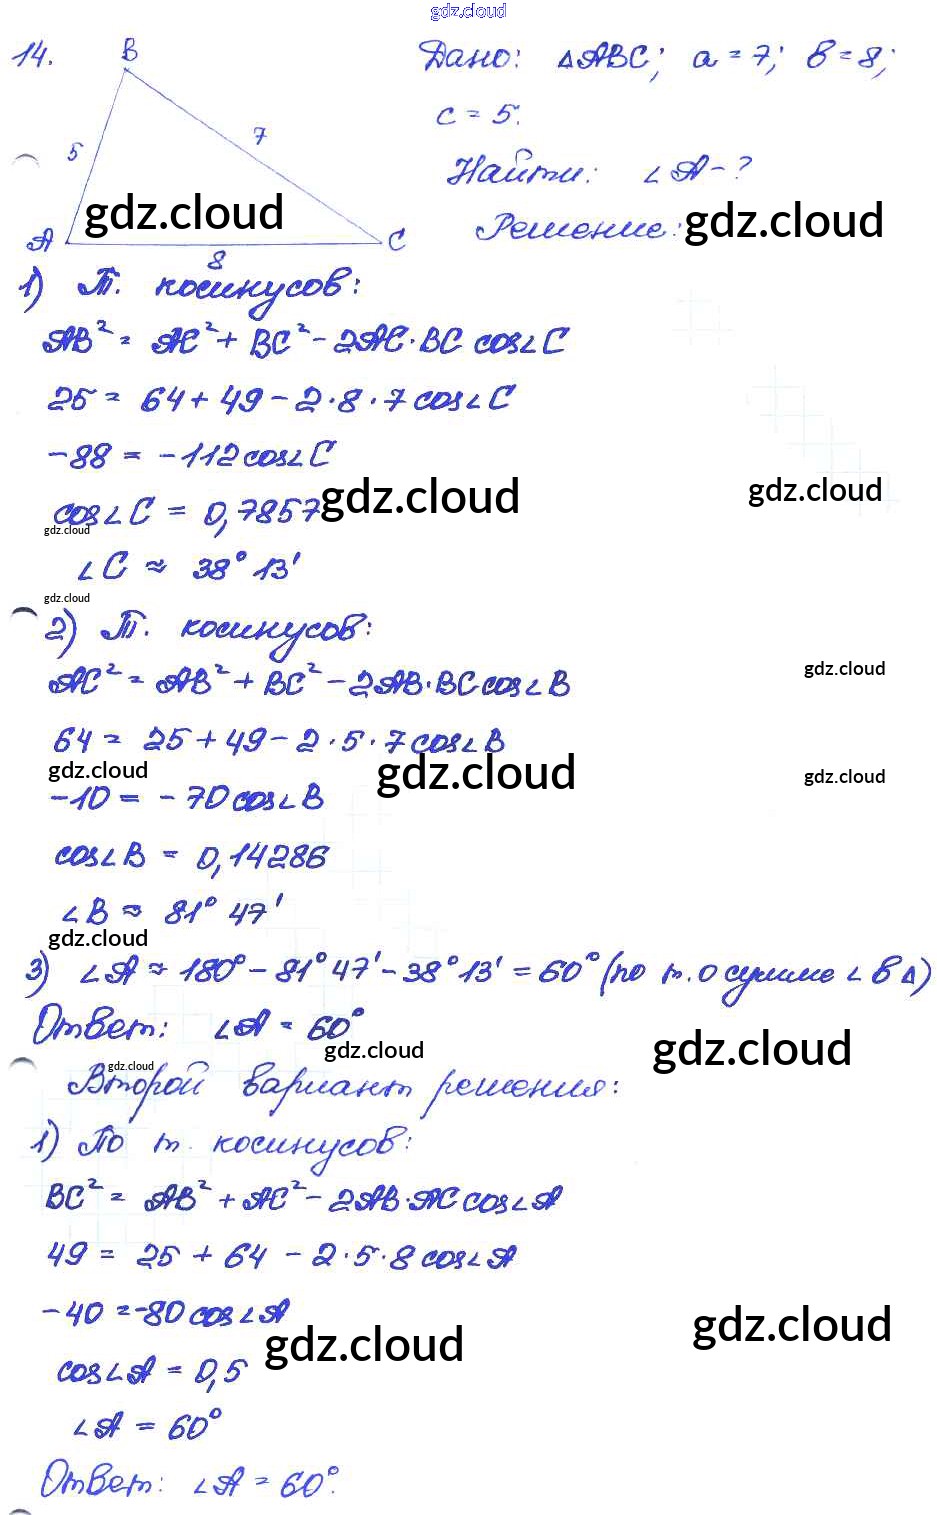 gdz.cloud
14. B Дано: △ABC; a = 7; b = 8;
5 7 c = 5.
Найти: ∠A - ?
gdz.cloud Решение: gdz.cloud
A 8 C
1) Т. косинусов:
AB² = AC² + BC² - 2AC·BC cos∠C
25 = 64 + 49 - 2·8·7 cos∠C
-88 = -112 cos∠C
cos∠C = 0,7857 gdz.cloud gdz.cloud
gdz.cloud
∠C ≈ 38° 13'
gdz.cloud
2) Т. косинусов:
AC² = AB² + BC² - 2AB·BC cos∠B gdz.cloud
64 = 25 + 49 - 2·5·7 cos∠B
gdz.cloud gdz.cloud gdz.cloud
-10 = -70 cos∠B
cos∠B = 0,14286
∠B ≈ 81° 47'
gdz.cloud
3) ∠A ≈ 180° - 81° 47' - 38° 13' = 60° (по т. о сумме ∠ в △)
Ответ: ∠A = 60°
gdz.cloud gdz.cloud
gdz.cloud
Второй вариант решения:
1) По т. косинусов:
BC² = AB² + AC² - 2AB·AC cos∠A
49 = 25 + 64 - 2·5·8 cos∠A
-40 = -80 cos∠A
gdz.cloud gdz.cloud
cos∠A = 0,5
∠A = 60°
Ответ: ∠A = 60°.